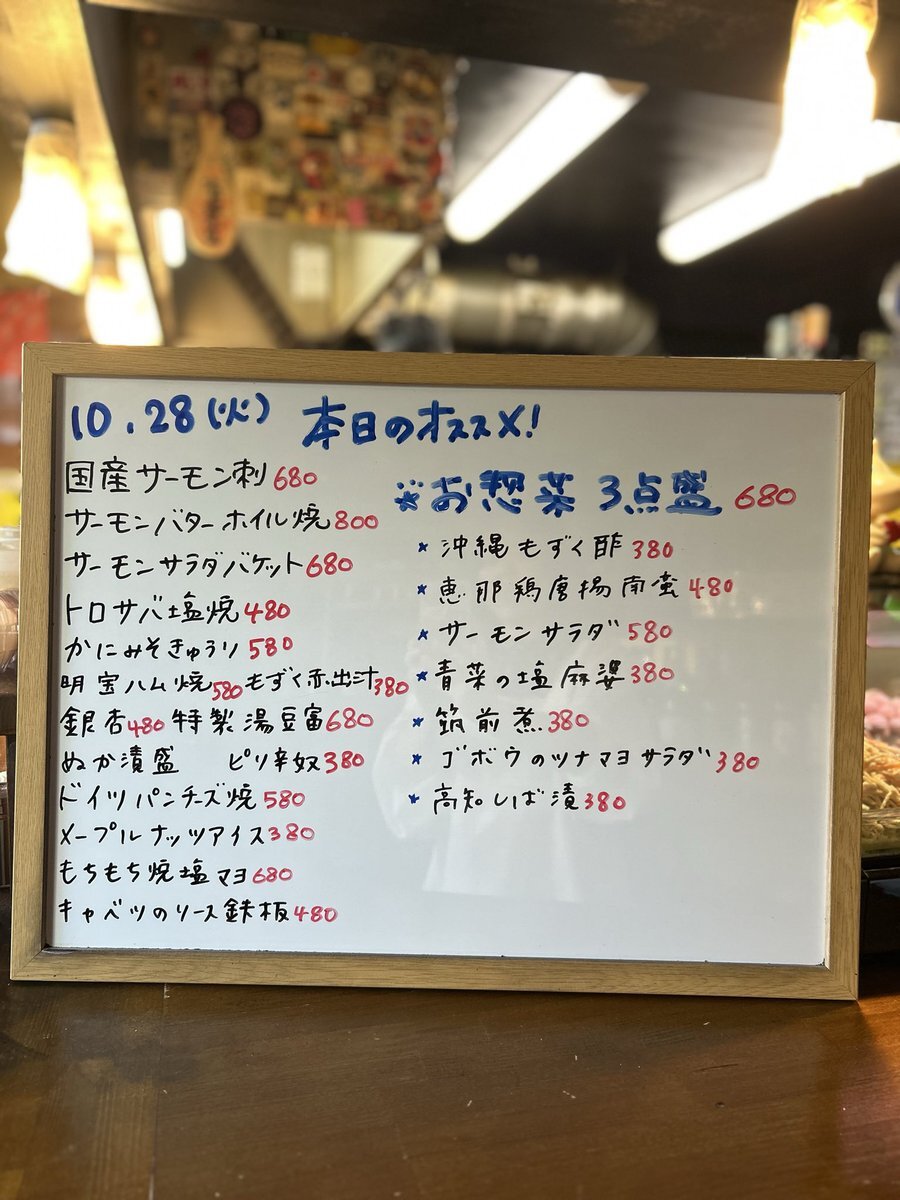 10.28(火) 本日のオススメ!
国産サーモン刺680
サーモンバターホイル焼800
サーモンサラダバケット680
トロサバ塩焼480
かにみそきゅうり580
明宝ハム焼580 もずく赤出汁380
銀杏480 特製湯豆富680
ぬか漬盛 ピリ辛奴380
ドイツパンチーズ焼580
メープルナッツアイス380
もちもち焼塩マヨ680
キャベツのソース鉄板480
※お惣菜3点盛680
*沖縄もずく酢380
*恵那鶏唐揚南蛮480
*サーモンサラダ580
*青菜の塩麻婆380
*筑前煮380
*ゴボウのツナマヨサラダ380
*高知しば漬380